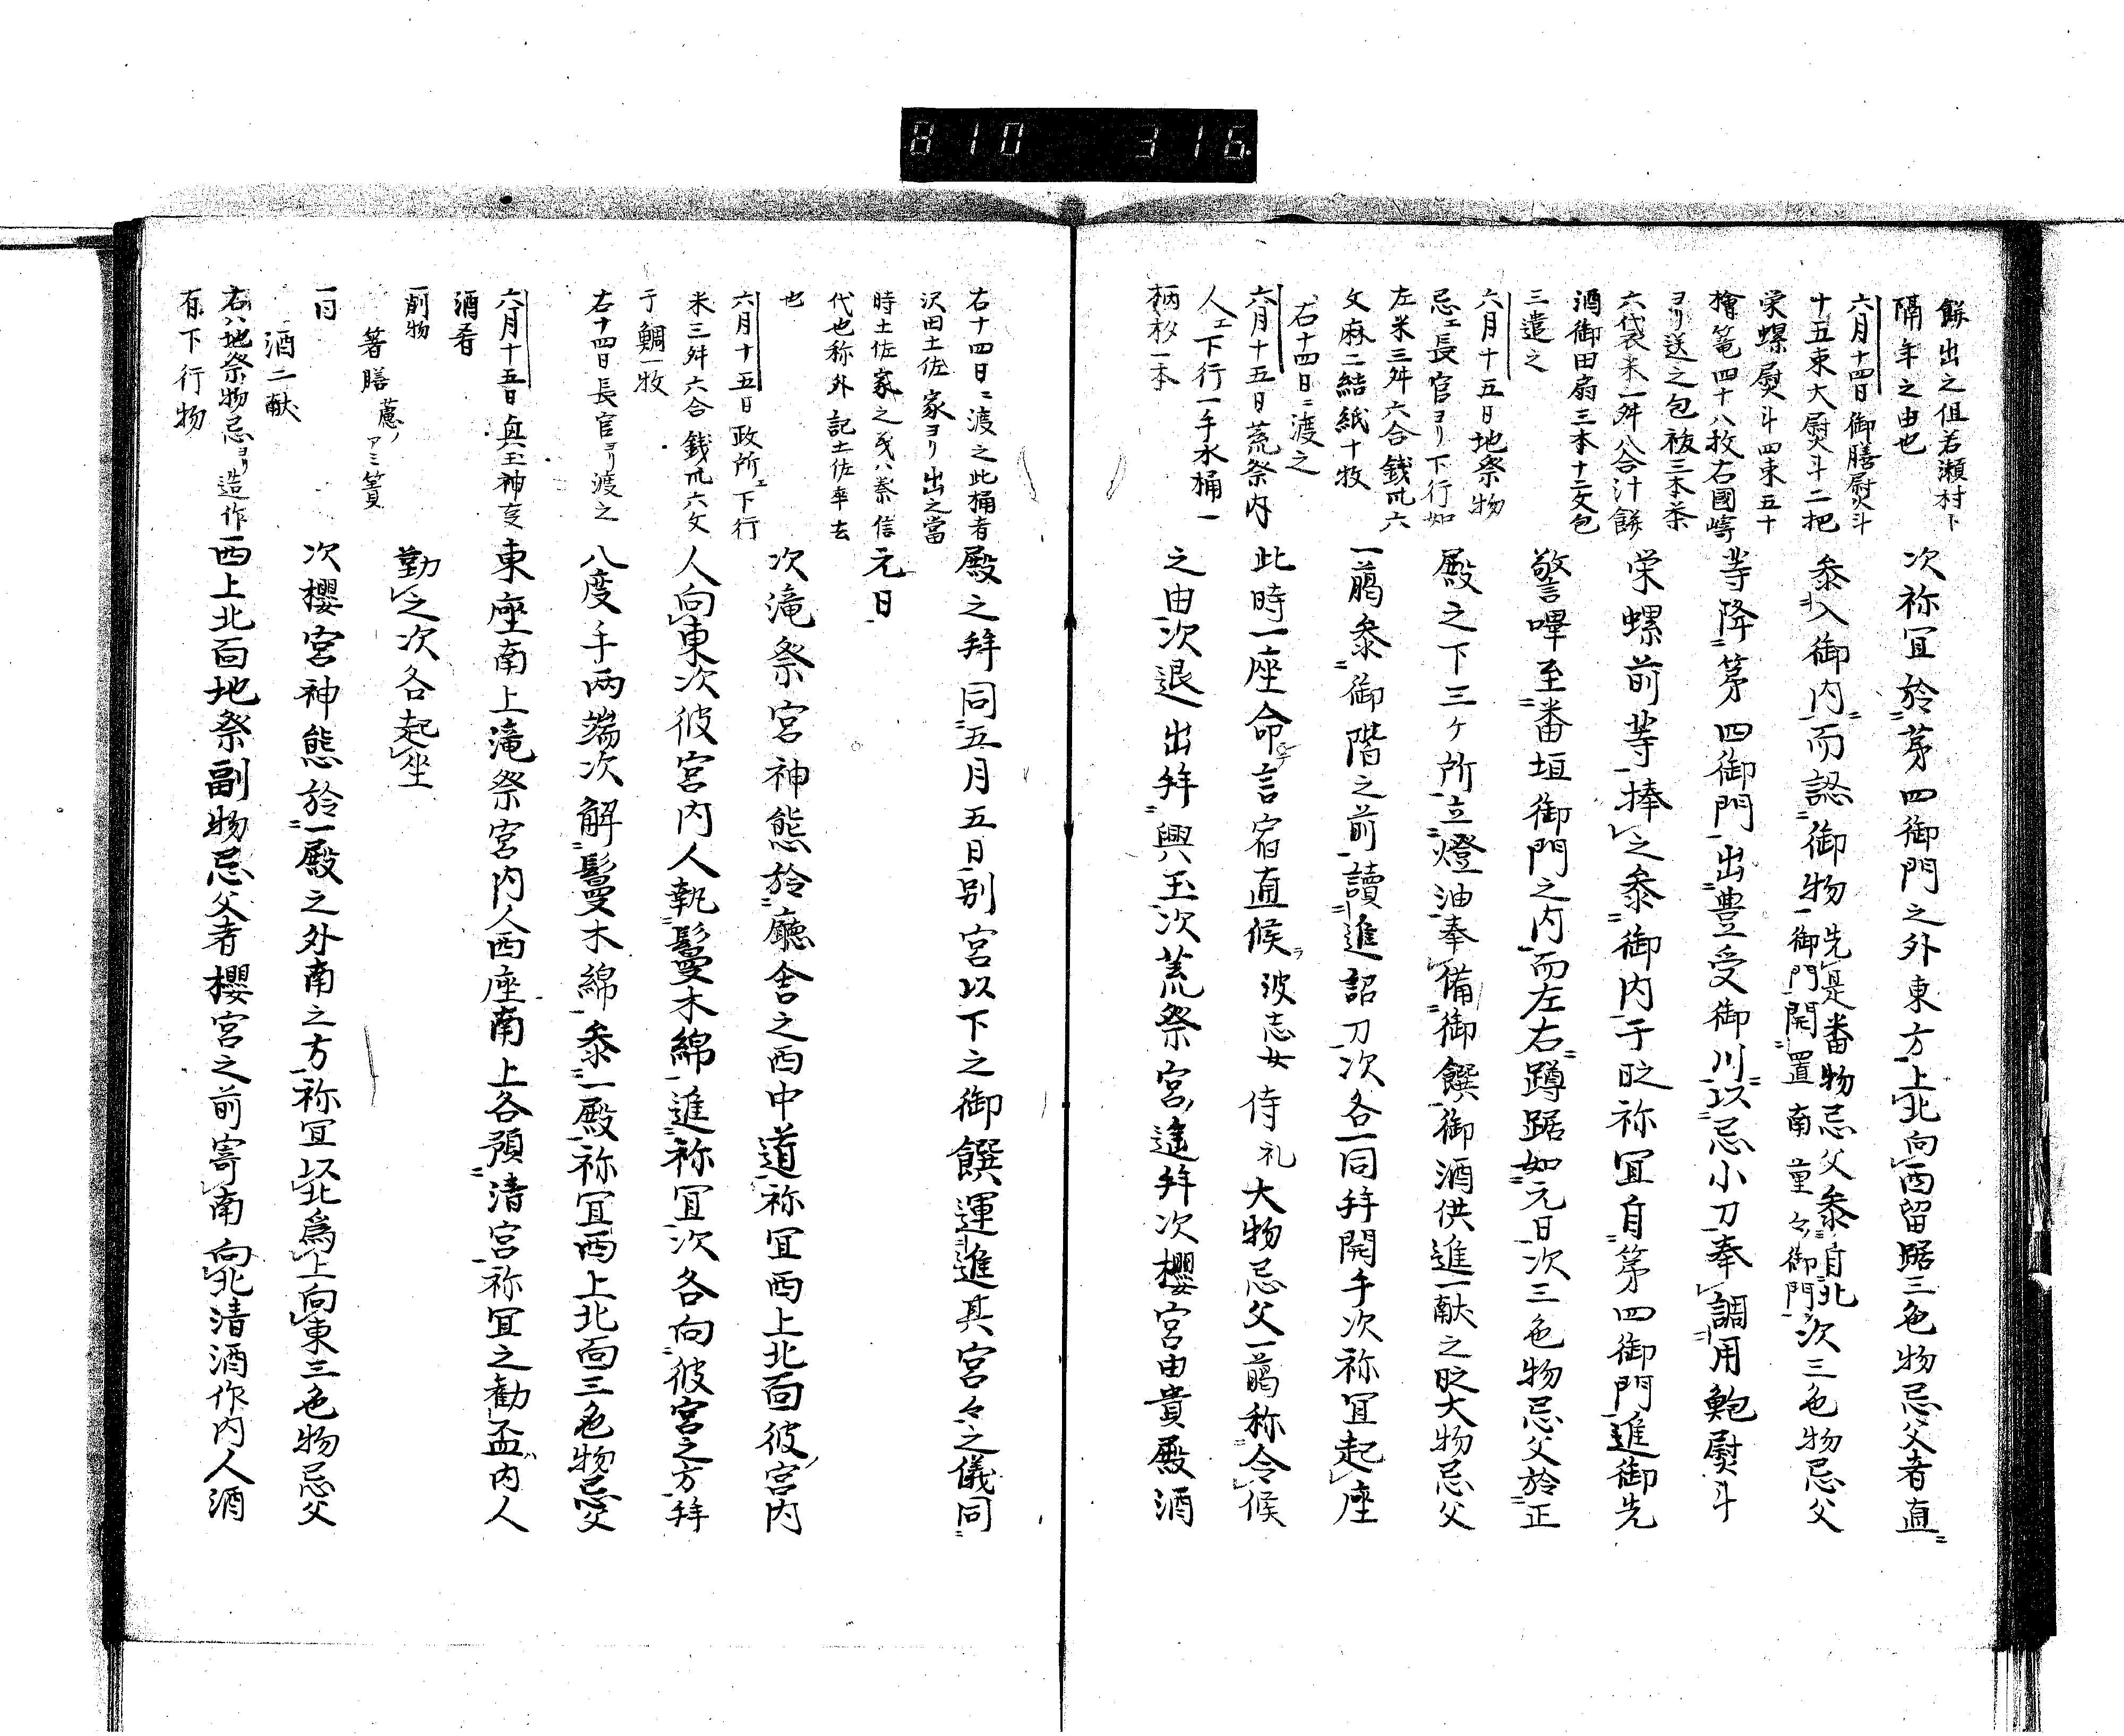 810 316
餅出之但若瀬村ト
隔年之由也
六月十四日御膳熨斗
十五束大熨斗二把
栄螺熨斗四束五十
檜篭四十八枚右國﨑
ヨリ送之包祓三本茶
六代衣米一舛八合汁餅
酒御田扇三本十二文包
三遣之
六月十五日地祭物
忌エ長官ヨリ下行如
左米三舛六合銭卅六
文麻二結紙十枚
右十四日ニ渡之
六月十五日荒祭内
人エ下行一手水桶一
柄杓一本
次祢冝於苐四御門之外東方上北向西留踞三色物忌父者直
参入御内而認御物先是番物忌父参自北御門開置南重々御門次三色物忌父
等降苐四御門出豊受御川以忌小刀奉調用鮑熨斗
栄螺前等捧之参御内于時祢冝自苐四御門進御先
警蹕至番垣御門之内而左右蹲踞如元日次三色物忌父於正
殿之下三ケ所立燈油奉備御饌御酒供進一献之時大物忌父
一﨟参御階之前讀進詔刀次各一同拝開手次祢冝起座
此時一座命言宿直候波志女侍礼大物忌父一﨟称令候
之由次退出拝興玉次荒祭宮遥拝次櫻宮由貴殿酒
右十四日ニ渡之此桶者
沢田土佐家ヨリ出之當
時土佐家之民ハ泰信
代也称外記土佐率去
也
六月十五日政所エ下行
米三舛六合銭卅六文
于鯛一枚
右十四日長官ヨリ渡之
六月十五日興玉神㕝
酒肴
一削物
箸膳薦ノアミ簀
一日
酒二献
右ハ地祭物忌ヨリ造作
有下行物
殿之拝同五月五日別宮以下之御饌運進其宮々之儀同
元日
次滝祭宮神態於廰舎之西中道祢冝西上北面彼宮内
人向東次彼宮内人執鬘木綿進祢冝次各向彼宮之方拝
八度手両端次解鬘木綿参一殿祢冝西上北面三色物忌父
東座南上滝祭宮内人西座南上各預清宮祢冝之勧盃内人
勤之次各起坐
次櫻宮神態於一殿之外南之方祢冝以北為上向東三色物忌父
西上北面地祭副物忌父者櫻宮之前寄南向北清酒作内人酒